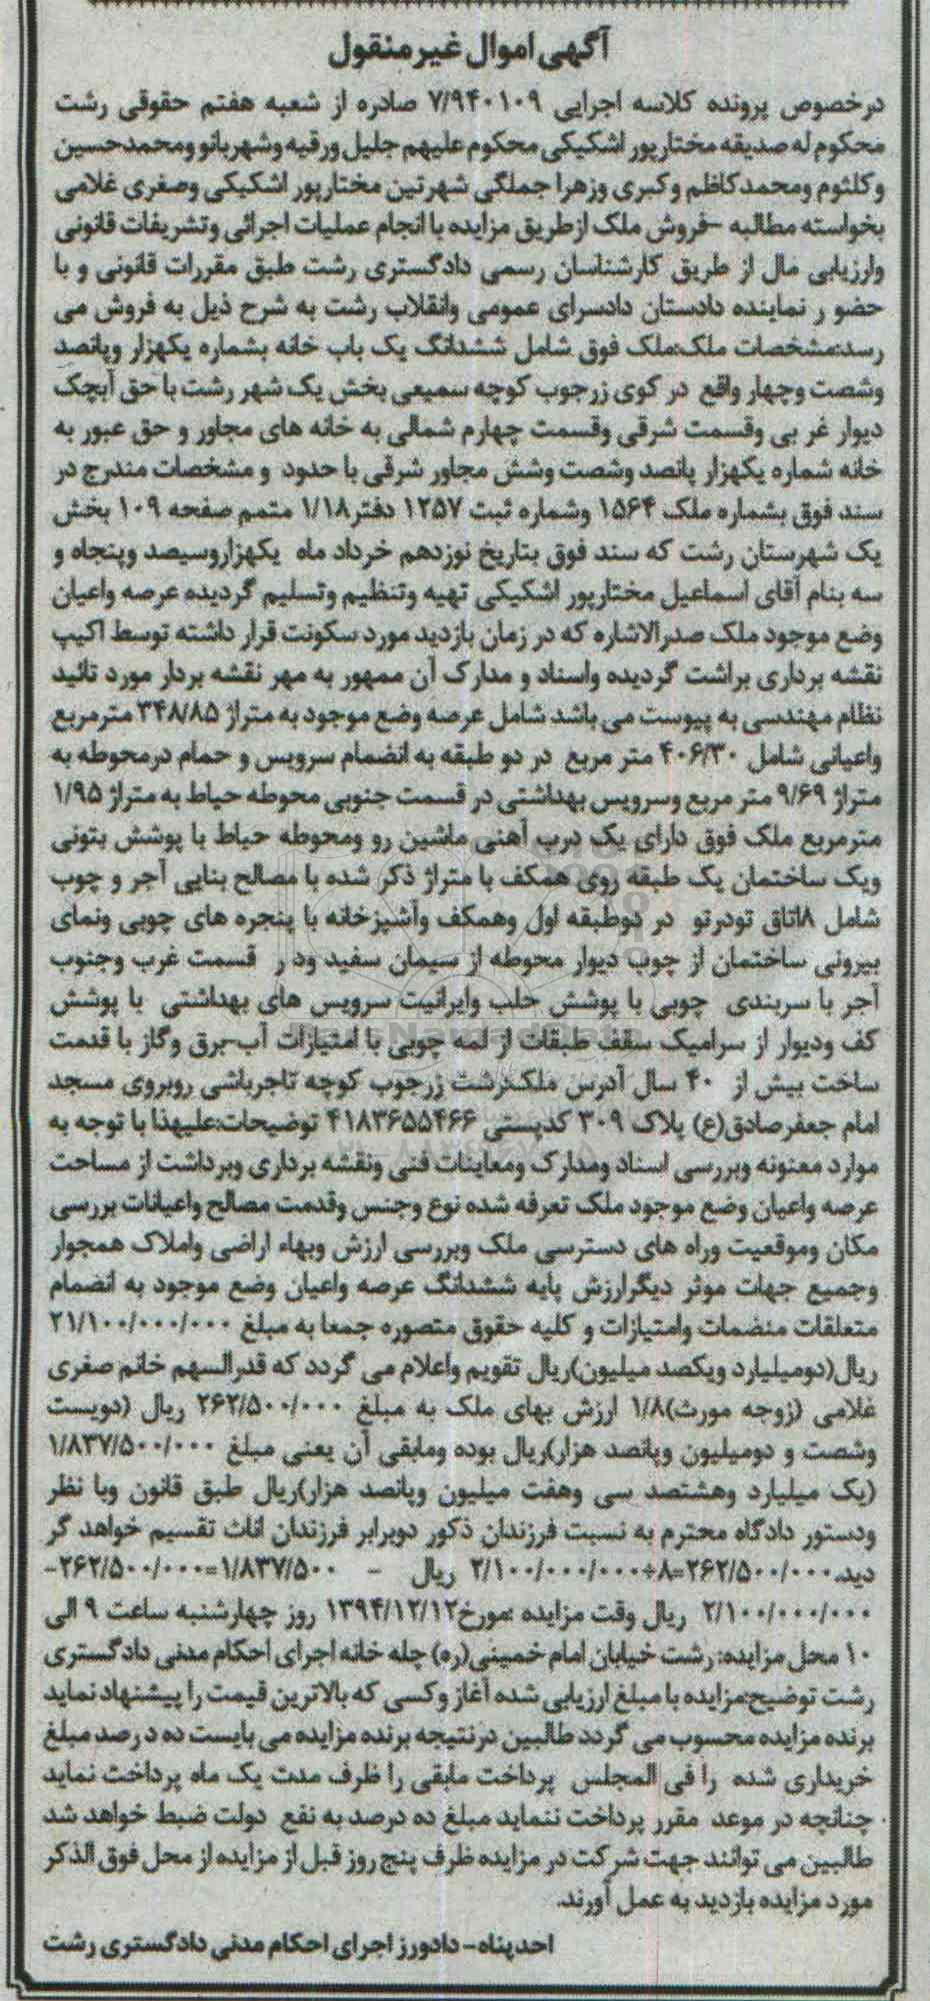 آگهی اموال غیرمنقول
درخصوص پرونده کلاسه اجرایی ۷/۹۴۰۱۰۹ صادره از شعبه هفتم حقوقی رشت
محکوم له صدیقه مختارپور اشکیکی محکوم علیهم جلیل ورقیه وشهربانو ومحمدحسین
وکلثوم ومحمدکاظم وکبری وزهرا جملگی شهرتین مختارپور اشکیکی وصغری غلامی
بخواسته مطالبه -فروش ملک ازطریق مزایده با انجام عملیات اجرائی وتشریفات قانونی
وارزیابی مال از طریق کارشناسان رسمی دادگستری رشت طبق مقررات قانونی و با
حضو ر نماینده دادستان دادسرای عمومی وانقلاب رشت به شرح ذیل به فروش می
رسد:مشخصات ملک:ملک فوق شامل ششدانگ یک باب خانه بشماره یکهزار وپانصد
وشصت وچهار واقع در کوی زرجوب کوچه سمیعی بخش یک شهر رشت با حق آبچک
دیوار غر بی وقسمت شرقی وقسمت چهارم شمالی به خانه های مجاور و حق عبور به
خانه شماره یکهزار پانصد وشصت وشش مجاور شرقی با حدود و مشخصات مندرج در
سند فوق بشماره ملک ۱۵۶۴ وشماره ثبت ۱۲۵۷ دفتر۱/۱۸ متمم صفحه ۱۰۹ بخش
یک شهرستان رشت که سند فوق بتاریخ نوزدهم خرداد ماه یکهزاروسیصد وپنجاه و
سه بنام آقای اسماعیل مختارپور اشکیکی تهیه وتنظیم وتسلیم گردیده عرصه واعیان
وضع موجود ملک صدرالاشاره که در زمان بازدید مورد سکونت قرار داشته توسط اکیپ
نقشه برداری براشت گردیده واسناد و مدارک آن ممهور به مهر نقشه بردار مورد تائید
نظام مهندسی به پیوست می باشد شامل عرصه وضع موجود به متراژ ۳۴۸/۸۵ مترمربع
واعیانی شامل ۴۰۶/۳۰ متر مربع در دو طبقه به انضمام سرویس و حمام درمحوطه به
متراژ ۹/۶۹ متر مربع وسرویس بهداشتی در قسمت جنوبی محوطه حیاط به متراژ ۱/۹۵
مترمربع ملک فوق دارای یک درب آهنی ماشین رو ومحوطه حیاط با پوشش بتونی
ویک ساختمان یک طبقه روی همکف با متراژ ذکر شده با مصالح بنایی آجر و چوب
شامل ۸اتاق تودرتو در دوطبقه اول وهمکف وآشپزخانه با پنجره های چوبی ونمای
بیرونی ساختمان از چوب دیوار محوطه از سیمان سفید ود ر قسمت غرب وجنوب
آجر با سربندی چوبی با پوشش حلب وایرانیت سرویس های بهداشتی با پوشش
کف ودیوار از سرامیک سقف طبقات از لمه چوبی با امتیازات آب-برق وگاز با قدمت
ساخت بیش از ۴۰ سال آدرس ملک:رشت زرجوب کوچه تاجرباشی روبروی مسجد
امام جعفرصادق(ع) پلاک ۳۰۹ کدپستی ۴۱۸۳۶۵۵۴۶۶ توضیحات:علیهذا با توجه به
موارد معنونه وبررسی اسناد ومدارک ومعاینات فنی ونقشه برداری وبرداشت از مساحت
عرصه واعیان وضع موجود ملک تعرفه شده نوع وجنس وقدمت مصالح واعیانات بررسی
مکان وموقعیت وراه های دسترسی ملک وبررسی ارزش وبهاء اراضی واملاک همجوار
وجمیع جهات موثر دیگرارزش پایه ششدانگ عرصه واعیان وضع موجود به انضمام
متعلقات منضمات وامتیازات و کلیه حقوق متصوره جمعا به مبلغ ۲۱/۱۰۰/۰۰۰/۰۰۰
ریال(دومیلیارد ویکصد میلیون)ریال تقویم واعلام می گردد که قدرالسهم خانم صغری
غلامی (زوجه مورث)۱/۸ ارزش بهای ملک به مبلغ ۲۶۲/۵۰۰/۰۰۰ ریال (دویست
وشصت و دومیلیون وپانصد هزار)ریال بوده ومابقی آن یعنی مبلغ ۱/۸۳۷/۵۰۰/۰۰۰
(یک میلیارد وهشتصد سی وهفت میلیون وپانصد هزار)ریال طبق قانون وبا نظر
ودستور دادگاه محترم به نسبت فرزندان ذکور دوبرابر فرزندان اناث تقسیم خواهد گر
دید.۲۶۲/۵۰۰/۰۰۰=۸÷۲/۱۰۰/۰۰۰/۰۰۰ ریال - ۱/۸۳۷/۵۰۰=۲۶۲/۵۰۰/۰۰۰-
۲/۱۰۰/۰۰۰/۰۰۰ ریال وقت مزایده :مورخ۱۳۹۴/۱۲/۱۲ روز چهارشنبه ساعت ۹ الی
۱۰ محل مزایده: رشت خیابان امام خمینی(ره) چله خانه اجرای احکام مدنی دادگستری
رشت توضیح:مزایده با مبلغ ارزیابی شده آغاز وکسی که بالاترین قیمت را پیشنهاد نماید
برنده مزایده محسوب می گردد طالبین درنتیجه برنده مزایده می بایست ده درصد مبلغ
خریداری شده را فی المجلس پرداخت مابقی را ظرف مدت یک ماه پرداخت نماید
چنانچه در موعد مقرر پرداخت ننماید مبلغ ده درصد به نفع دولت ضبط خواهد شد
طالبین می توانند جهت شرکت در مزایده ظرف پنج روز قبل از مزایده از محل فوق الذکر
مورد مزایده بازدید به عمل آورند.
احدپناه- دادورز اجرای احکام مدنی دادگستری رشت